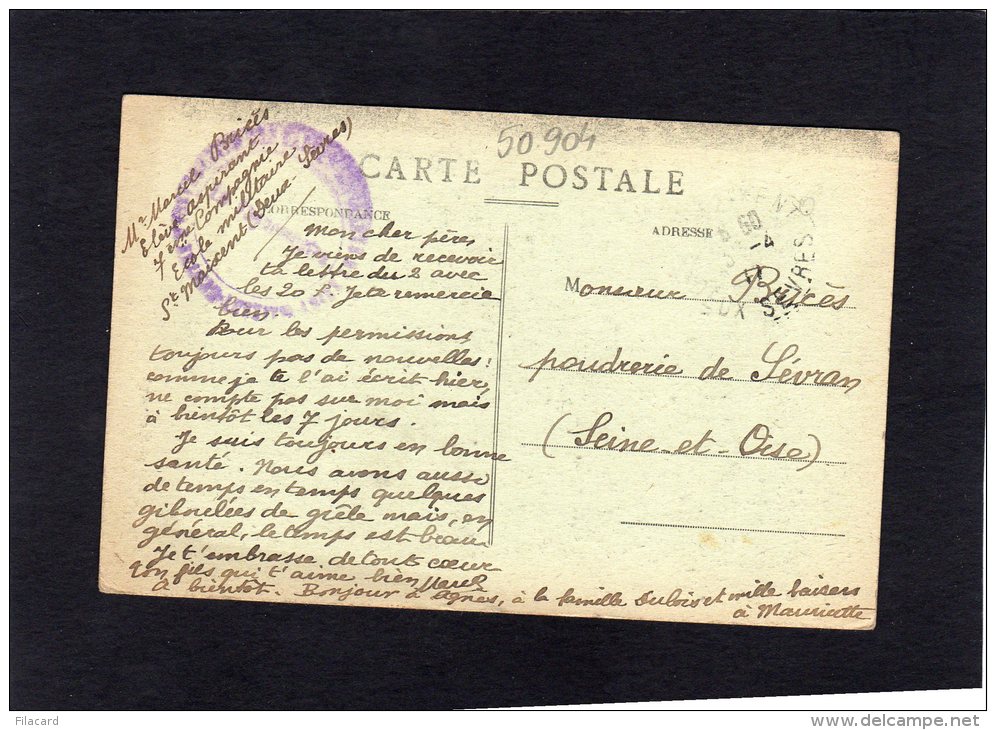 50904
CARTE POSTALE
CORRESPONDANCE
ADRESSE
Mr Marcel Bricès
Elève aspirant
7ème Compagnie
Ecole militaire
St Maixent (Deux-Sèvres)
Mon cher père,
Je viens de recevoir
ta lettre du 2 avec
les 20 f. Je te remercie
bien.
Pour les permissions
toujours pas de nouvelles :
comme je te l'ai écrit hier,
ne compte pas sur moi mais
à bientôt les 7 jours.
Je suis toujours en bonne
santé. Nous avons aussi
de temps en temps quelques
giboulées de grêle mais, en
général, le temps est beau.
Je t'embrasse de tout cœur
Ton fils qui t'aime bien
A bientôt. Bonjour à Agnès, à la famille Dubois et mille baisers
à Mauricette
Monsieur Bricès
poudrerie de Sévran
(Seine-et-Oise)
SEVRES
Filacard
www.delcampe.net